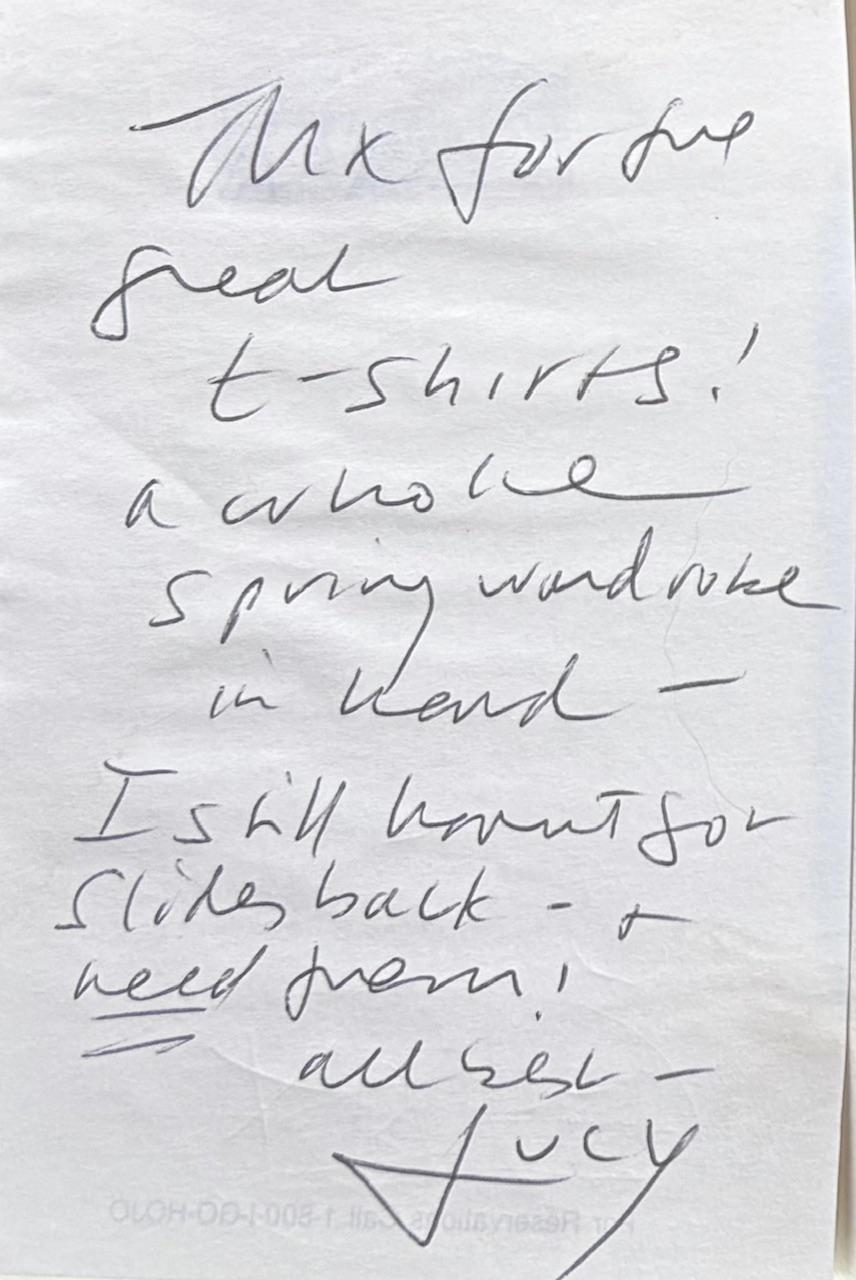 Thx for the
great
t-shirts!
a whole
spring wardrobe
in hand –
I still havent got
slides back – +
need them!
all best –
Lucy
For Reservations Call 1-800-I-GO-HOJO